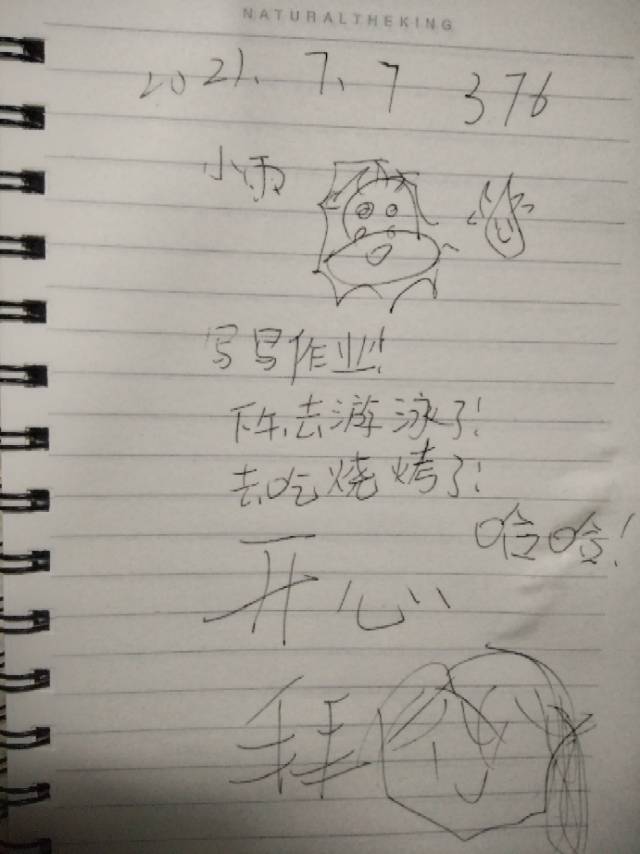 NATURALTHEKING
2021、7、7 376
小雨
写写作业!
下午去游泳了!
去吃烧烤了!
哈哈!
开心
拜